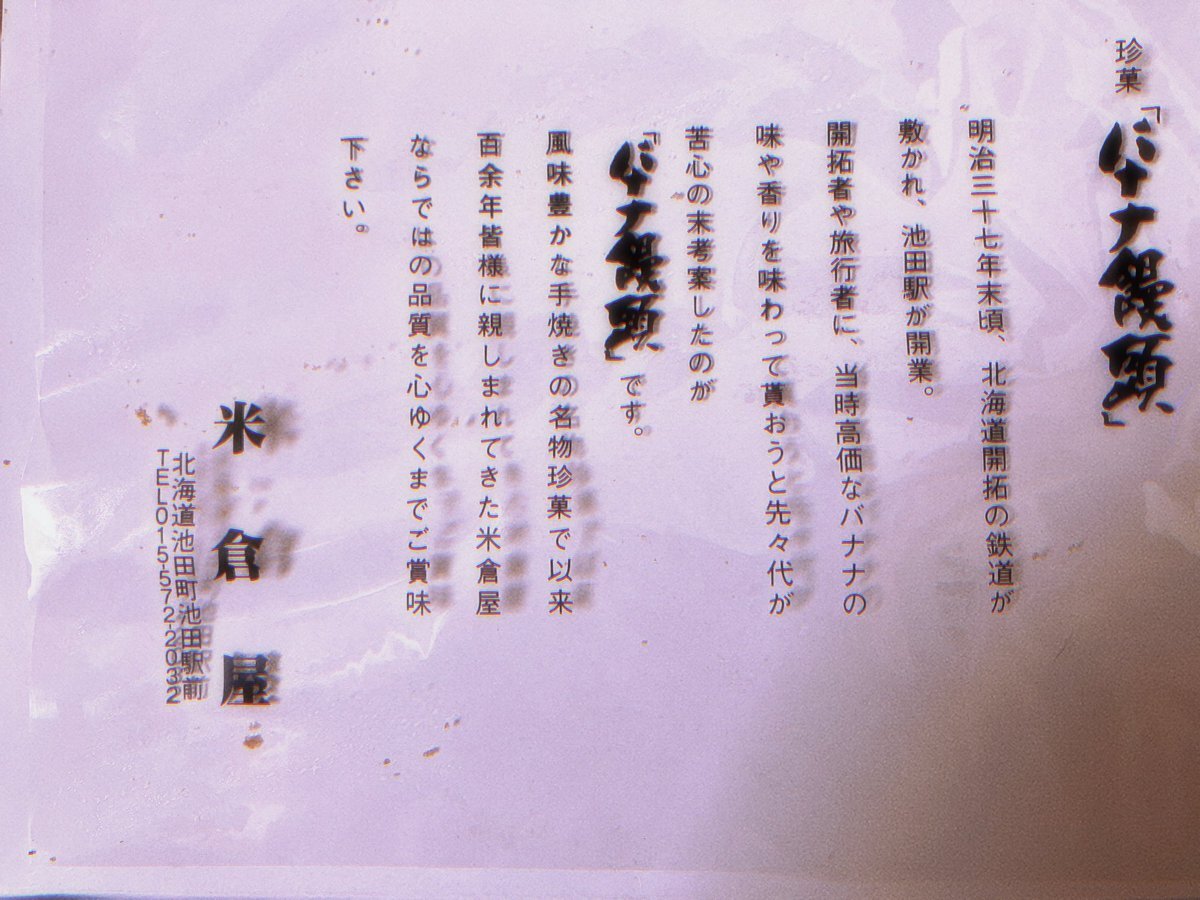 珍菓「バナナ饅頭」
明治三十七年末頃、北海道開拓の鉄道が
敷かれ、池田駅が開業。
開拓者や旅行者に、当時高価なバナナの
味や香りを味わって貰おうと先々代が
苦心の末考案したのが
「バナナ饅頭」です。
風味豊かな手焼きの名物珍菓で以来
百余年皆様に親しまれてきた米倉屋
ならではの品質を心ゆくまでご賞味
下さい。
米倉屋
北海道池田町池田駅前
TEL015-572-2032